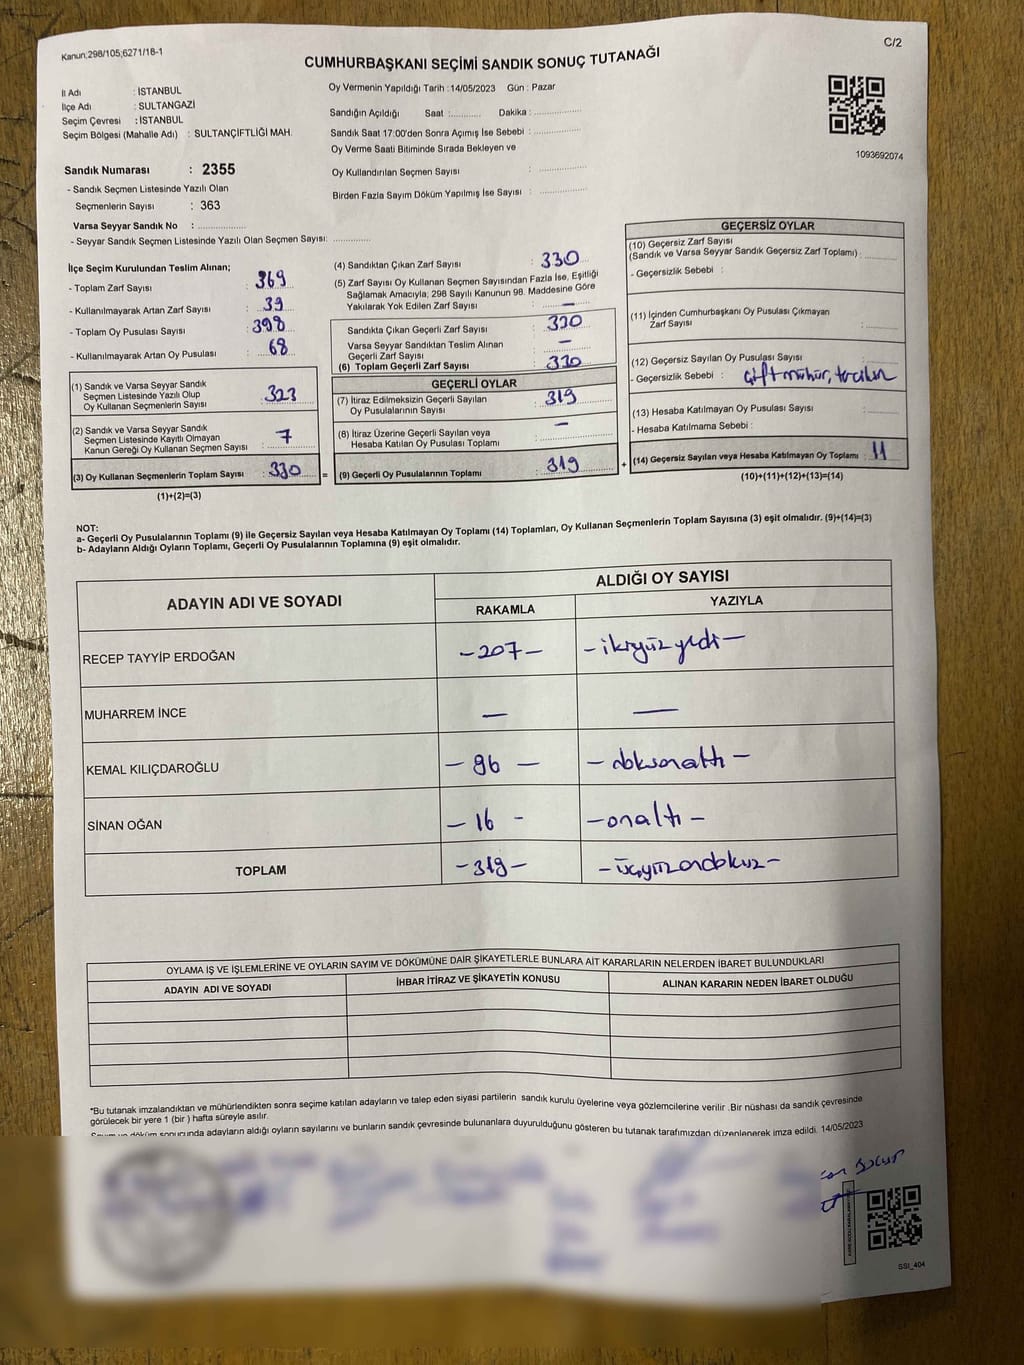 Kanun;298/105,6271/18-1
C/2
CUMHURBAŞKANI SEÇİMİ SANDIK SONUÇ TUTANAĞI
İl Adı : İSTANBUL
İlçe Adı : SULTANGAZİ
Seçim Çevresi : İSTANBUL
Seçim Bölgesi (Mahalle Adı) : SULTANÇİFTLİĞİ MAH.
Oy Vermenin Yapıldığı Tarih :14/05/2023 Gün : Pazar
Sandığın Açıldığı Saat :........... Dakika :...............
Sandık Saat 17:00'den Sonra Açımış İse Sebebi :...............
Oy Verme Saati Bitiminde Sırada Bekleyen ve
Oy Kullandırılan Seçmen Sayısı :...............
Birden Fazla Sayım Döküm Yapılmış İse Sayısı :...............
1093692074
Sandık Numarası : 2355
- Sandık Seçmen Listesinde Yazılı Olan
Seçmenlerin Sayısı : 363
Varsa Seyyar Sandık No :...............
- Seyyar Sandık Seçmen Listesinde Yazılı Olan Seçmen Sayısı:............
İlçe Seçim Kurulundan Teslim Alınan;
- Toplam Zarf Sayısı : 369
- Kullanılmayarak Artan Zarf Sayısı : 39
- Toplam Oy Pusulası Sayısı : 398
- Kullanılmayarak Artan Oy Pusulası : 68
(1) Sandık ve Varsa Seyyar Sandık
Seçmen Listesinde Yazılı Olup
Oy Kullanan Seçmenlerin Sayısı : 323
(2) Sandık ve Varsa Seyyar Sandık
Seçmen Listesinde Kayıtlı Olmayan
Kanun Gereği Oy Kullanan Seçmen Sayısı : 7
(3) Oy Kullanan Seçmenlerin Toplam Sayısı : 330 =
(1)+(2)=(3)
(4) Sandıktan Çıkan Zarf Sayısı : 330
(5) Zarf Sayısı Oy Kullanan Seçmen Sayısından Fazla İse, Eşitliği
Sağlamak Amacıyla; 298 Sayılı Kanunun 98. Maddesine Göre
Yakılarak Yok Edilen Zarf Sayısı : —
Sandıkta Çıkan Geçerli Zarf Sayısı : 330
Varsa Seyyar Sandıktan Teslim Alınan
Geçerli Zarf Sayısı : —
(6) Toplam Geçerli Zarf Sayısı : 330
GEÇERLİ OYLAR
(7) İtiraz Edilmeksizin Geçerli Sayılan
Oy Pusulalarının Sayısı : 319
(8) İtiraz Üzerine Geçerli Sayılan veya
Hesaba Katılan Oy Pusulası Toplamı : —
(9) Geçerli Oy Pusulalarının Toplamı : 319 +
GEÇERSİZ OYLAR
(10) Geçersiz Zarf Sayısı
(Sandık ve Varsa Seyyar Sandık Geçersiz Zarf Toplamı) :............
- Geçersizlik Sebebi :
(11) İçinden Cumhurbaşkanı Oy Pusulası Çıkmayan
Zarf Sayısı :............
(12) Geçersiz Sayılan Oy Pusulası Sayısı :............
- Geçersizlik Sebebi : Çift mühür,
(13) Hesaba Katılmayan Oy Pusulası Sayısı :............
- Hesaba Katılmama Sebebi :
(14) Geçersiz Sayılan veya Hesaba Katılmayan Oy Toplamı : 11
(10)+(11)+(12)+(13)=(14)
NOT:
a- Geçerli Oy Pusulalarının Toplamı (9) ile Geçersiz Sayılan veya Hesaba Katılmayan Oy Toplamı (14) Toplamları, Oy Kullanan Seçmenlerin Toplam Sayısına (3) eşit olmalıdır. (9)+(14)=(3)
b- Adayların Aldığı Oyların Toplamı, Geçerli Oy Pusulalarının Toplamına (9) eşit olmalıdır.
ADAYIN ADI VE SOYADI ALDIĞI OY SAYISI
RAKAMLA YAZIYLA
RECEP TAYYİP ERDOĞAN -207- -ikiyüzyedi-
MUHARREM İNCE — —
KEMAL KILIÇDAROĞLU - 96 - - doksanaltı -
SİNAN OĞAN - 16 - -onaltı -
TOPLAM -319- -üçyüzondokuz-
OYLAMA İŞ VE İŞLEMLERİNE VE OYLARIN SAYIM VE DÖKÜMÜNE DAİR ŞİKAYETLERLE BUNLARA AİT KARARLARIN NELERDEN İBARET BULUNDUKLARI
ADAYIN ADI VE SOYADI İHBAR İTİRAZ VE ŞİKAYETİN KONUSU ALINAN KARARIN NEDEN İBARET OLDUĞU
*Bu tutanak imzalandıktan ve mühürlendikten sonra seçime katılan adayların ve talep eden siyasi partilerin sandık kurulu üyelerine veya gözlemcilerine verilir .Bir nüshası da sandık çevresinde
görülecek bir yere 1 (bir ) hafta süreyle asılır.
Sayım ve döküm sonucunda adayların aldığı oyların sayılarını ve bunların sandık çevresinde bulunanlara duyurulduğunu gösteren bu tutanak tarafımızdan düzenlenerek imza edildi. 14/05/2023
SSI_404